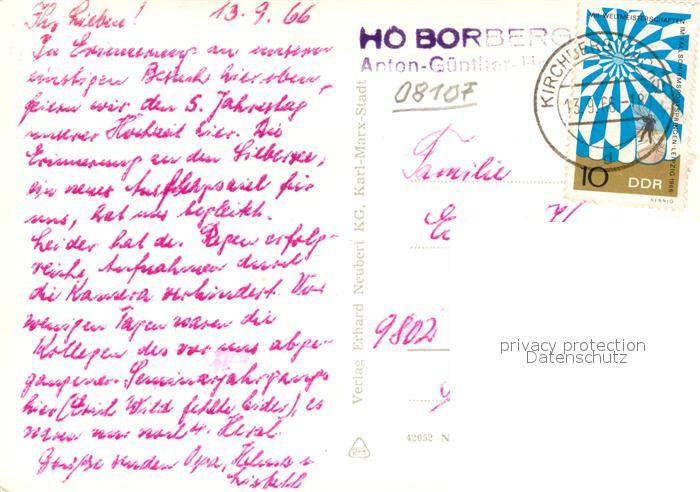 Ihr Lieben! 13.9.66
In Erinnerung an unseren
einstigen Besuch hier oben,
feiern wir den 5. Jahrestag
unserer Hochzeit hier. Die
Erinnerung an den Silbersee,
ein neues für
uns, hat uns begleitet.
Leider hat der Regen erfolg-
reiche Aufnahmen durch
die Kamera verhindert. Vor
wenigen Tagen waren die
Kollegen des vor uns abge-
gangenen Seminarjahrgangs
hier (Erich Wild fehlte leider), es
waren nur noch 4.
Grüße senden Opa, Helma u.
Lisbeth
HO BORBERG
Anton-Günther-
08107
KIRCHBERG
13.9.66
d
MIT WELTMEISTERSCHAFTEN IM FALLSCHIRMSPRINGEN LEIPZIG 1966
10 DDR
HENNIG
Familie
9802
Verlag Erhard Neubert KG, Karl-Marx-Stadt
42052 N
privacy protection
Datenschutz